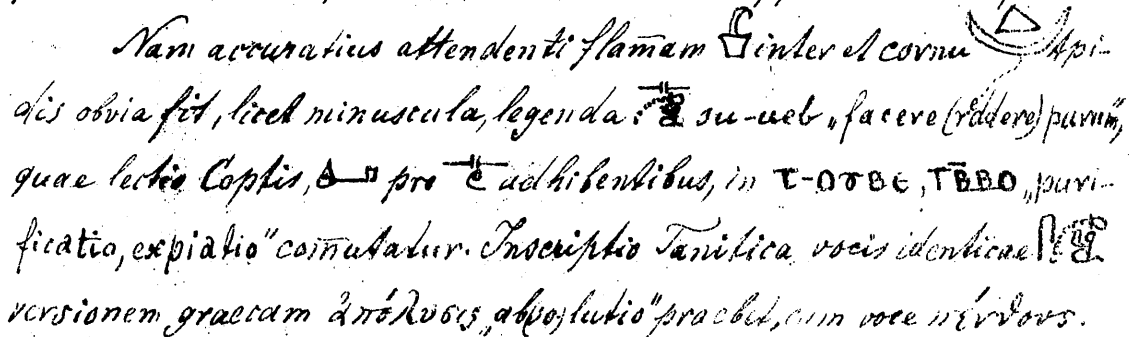 Nam accuratius attendenti flam̄am inter et cornu lapi-
dis obvia fit, licet minuscula, legenda: su-ueb „facere (reddere) purum",
quae lectio Coptis, pro adhibentibus, in ⲧ-ⲟⲩⲃⲉ, ⲧⲃ̄ⲃⲟ „puri-
ficatio, expiatio" com̄utatur. Inscriptio Tanitica vocis identicae
versionem graecam ἀπόλυσις „ab(so)lutio" praebet, cum voce